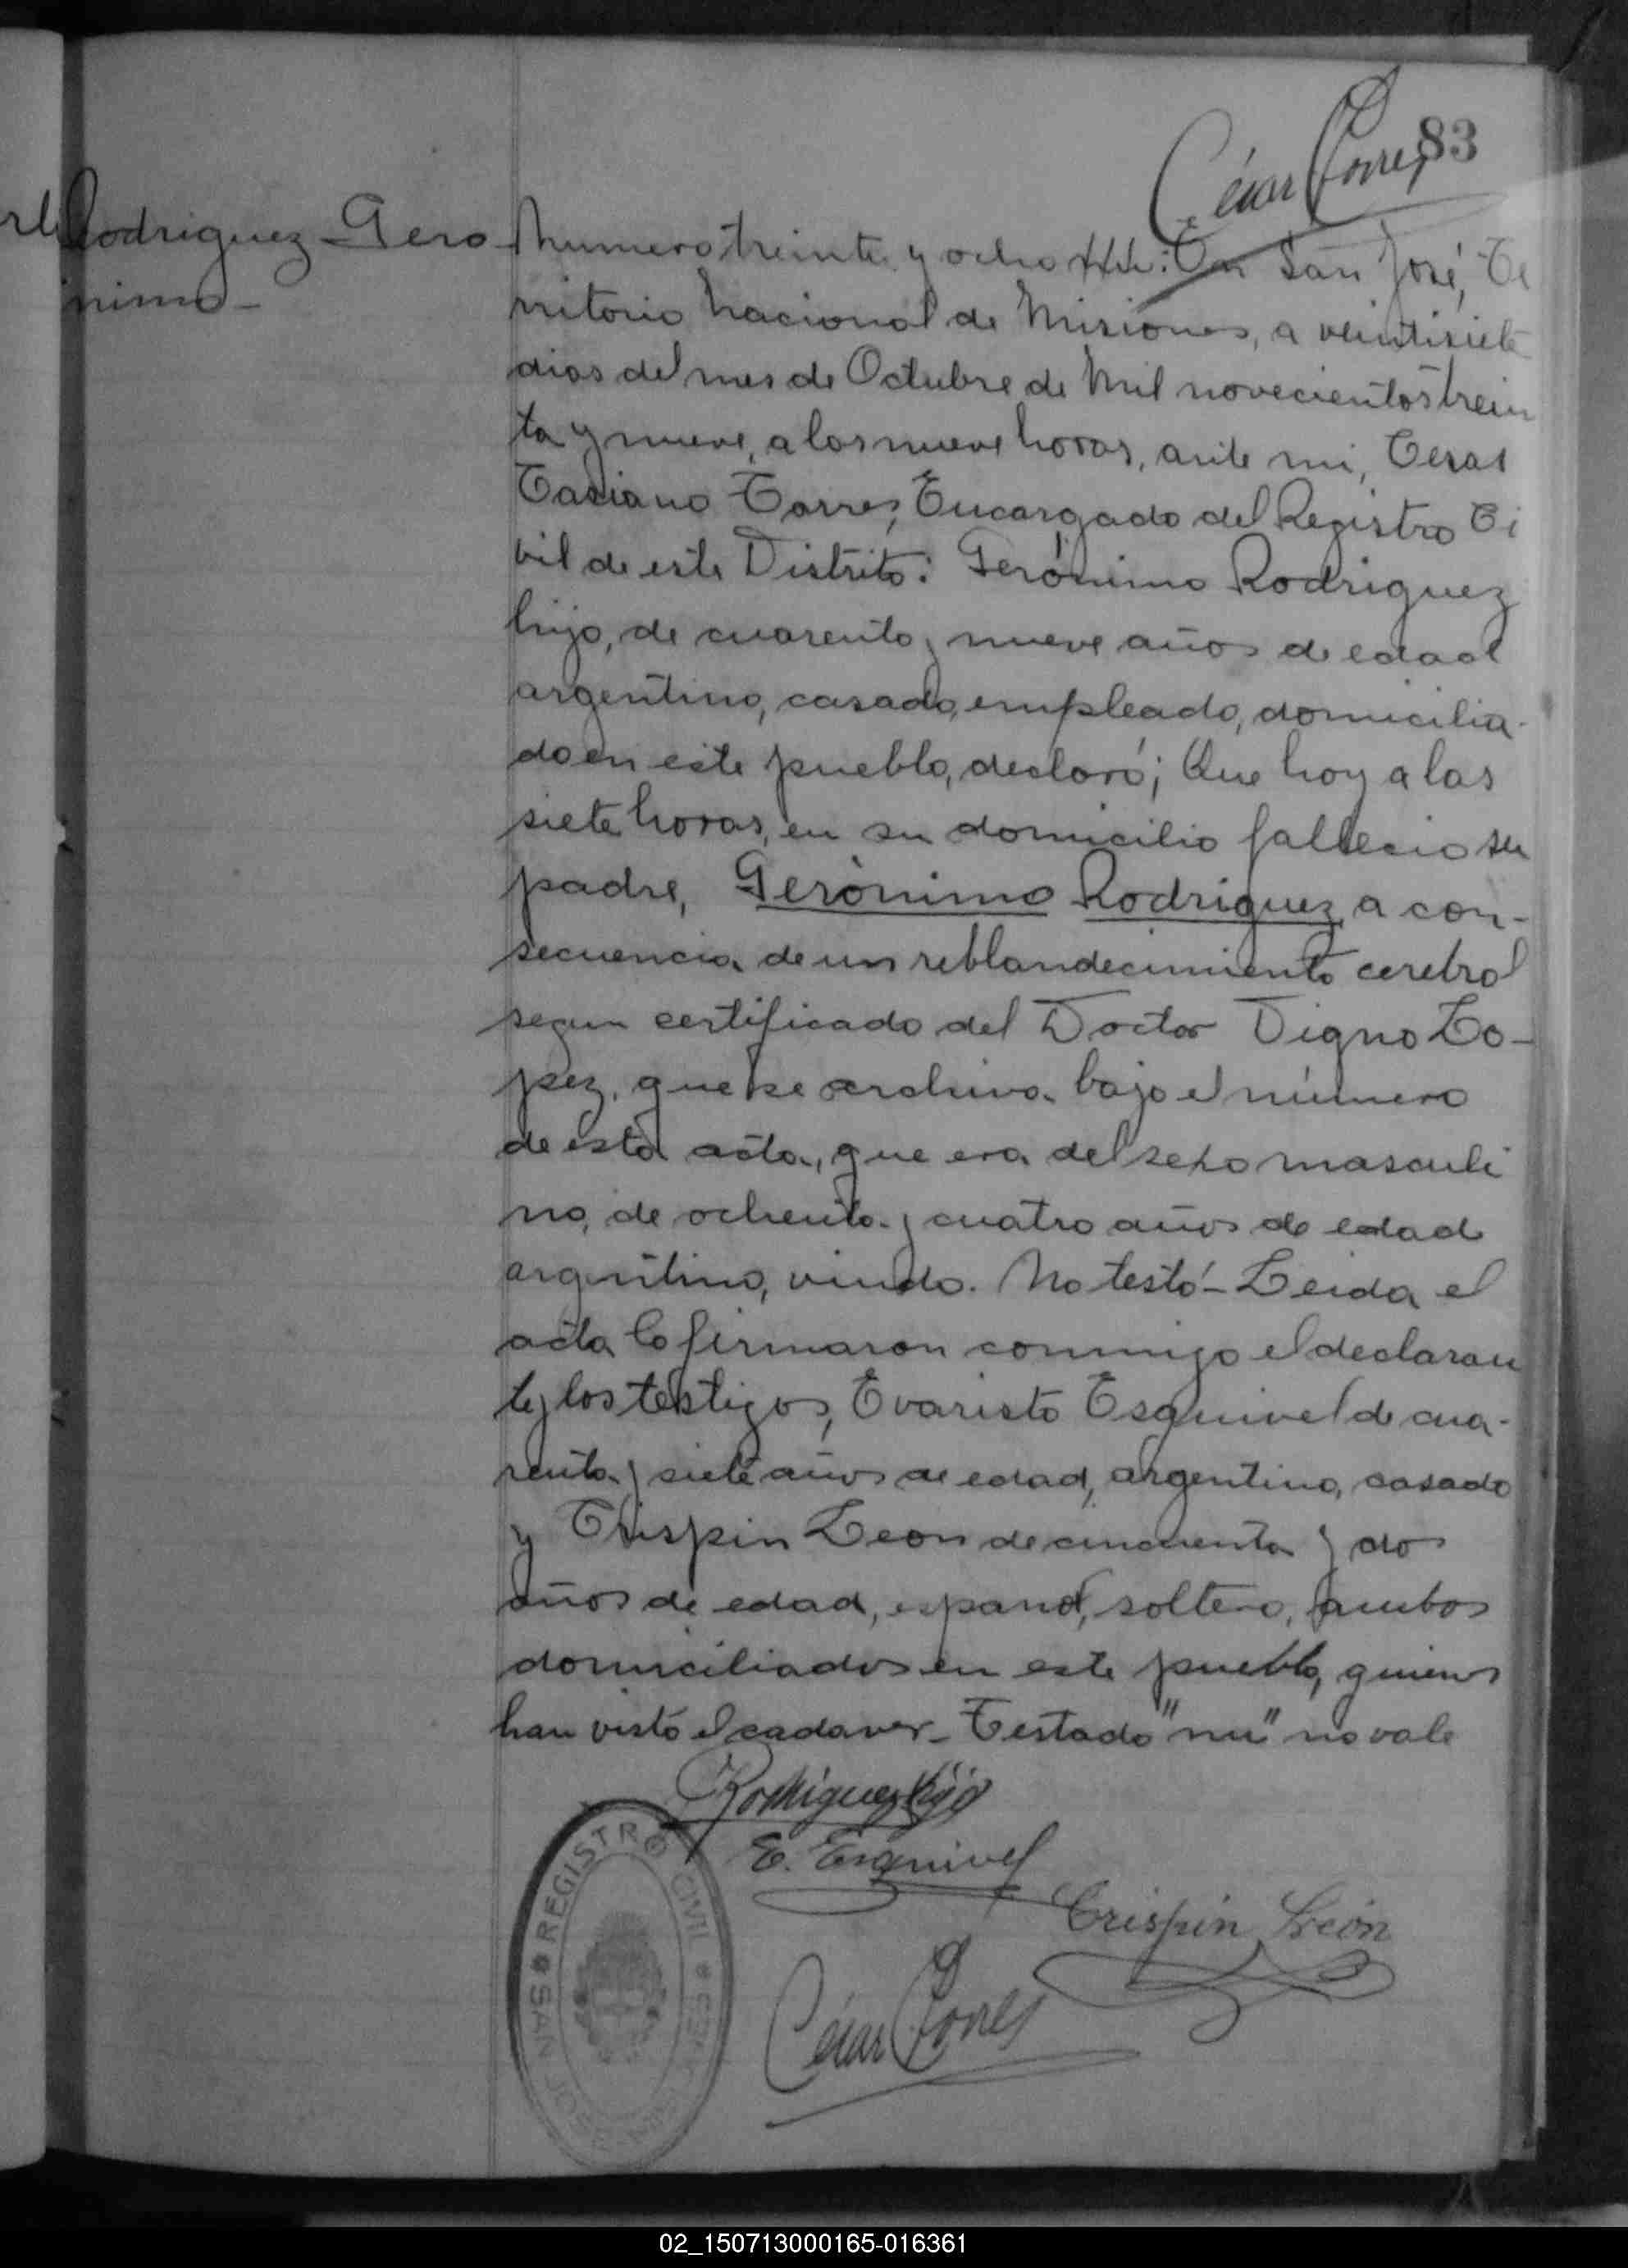 César Torres
83
Rodriguez Gero
nimo -
Numero treinta y ocho : En San José, Te
rritorio Nacional de Misiones, a veintisiete
dias del mes de Octubre de Mil novecientos trein
ta y nueve, a las nueve horas, ante mi, Cesar
Casiano Torres, Encargado del Registro Ci
vil de este Distrito: Gerónimo Rodriguez
hijo, de cuarenta y nueve años de edad
argentino, casado, empleado, domicilia-
do en este pueblo, declaró; Que hoy a las
siete horas, en su domicilio fallecio su
padre, Gerónimo Rodriguez, a con-
secuencia de un reblandecimiento cerebral
segun certificado del Doctor Digno Lo-
pez, que se archiva bajo el número
de esta acta, que era del sexo masculi
no, de ochenta y cuatro años de edad
argentino, viudo. No testó - Leida el
acta la firmaron conmigo el declaran
te y los testigos, Evaristo Esquivel de cua-
renta y siete años de edad, argentino, casado
y Crispin Leon de cincuenta y dos
años de edad, español, soltero, ambos
domiciliados en este pueblo, quienes
han visto el cadaver - Testado "nu" no vale
Rodriguez hijo
E. Esquivel
Crispin León
César Torres
REGISTRO CIVIL
SAN JOSE
02_150713000165-016361